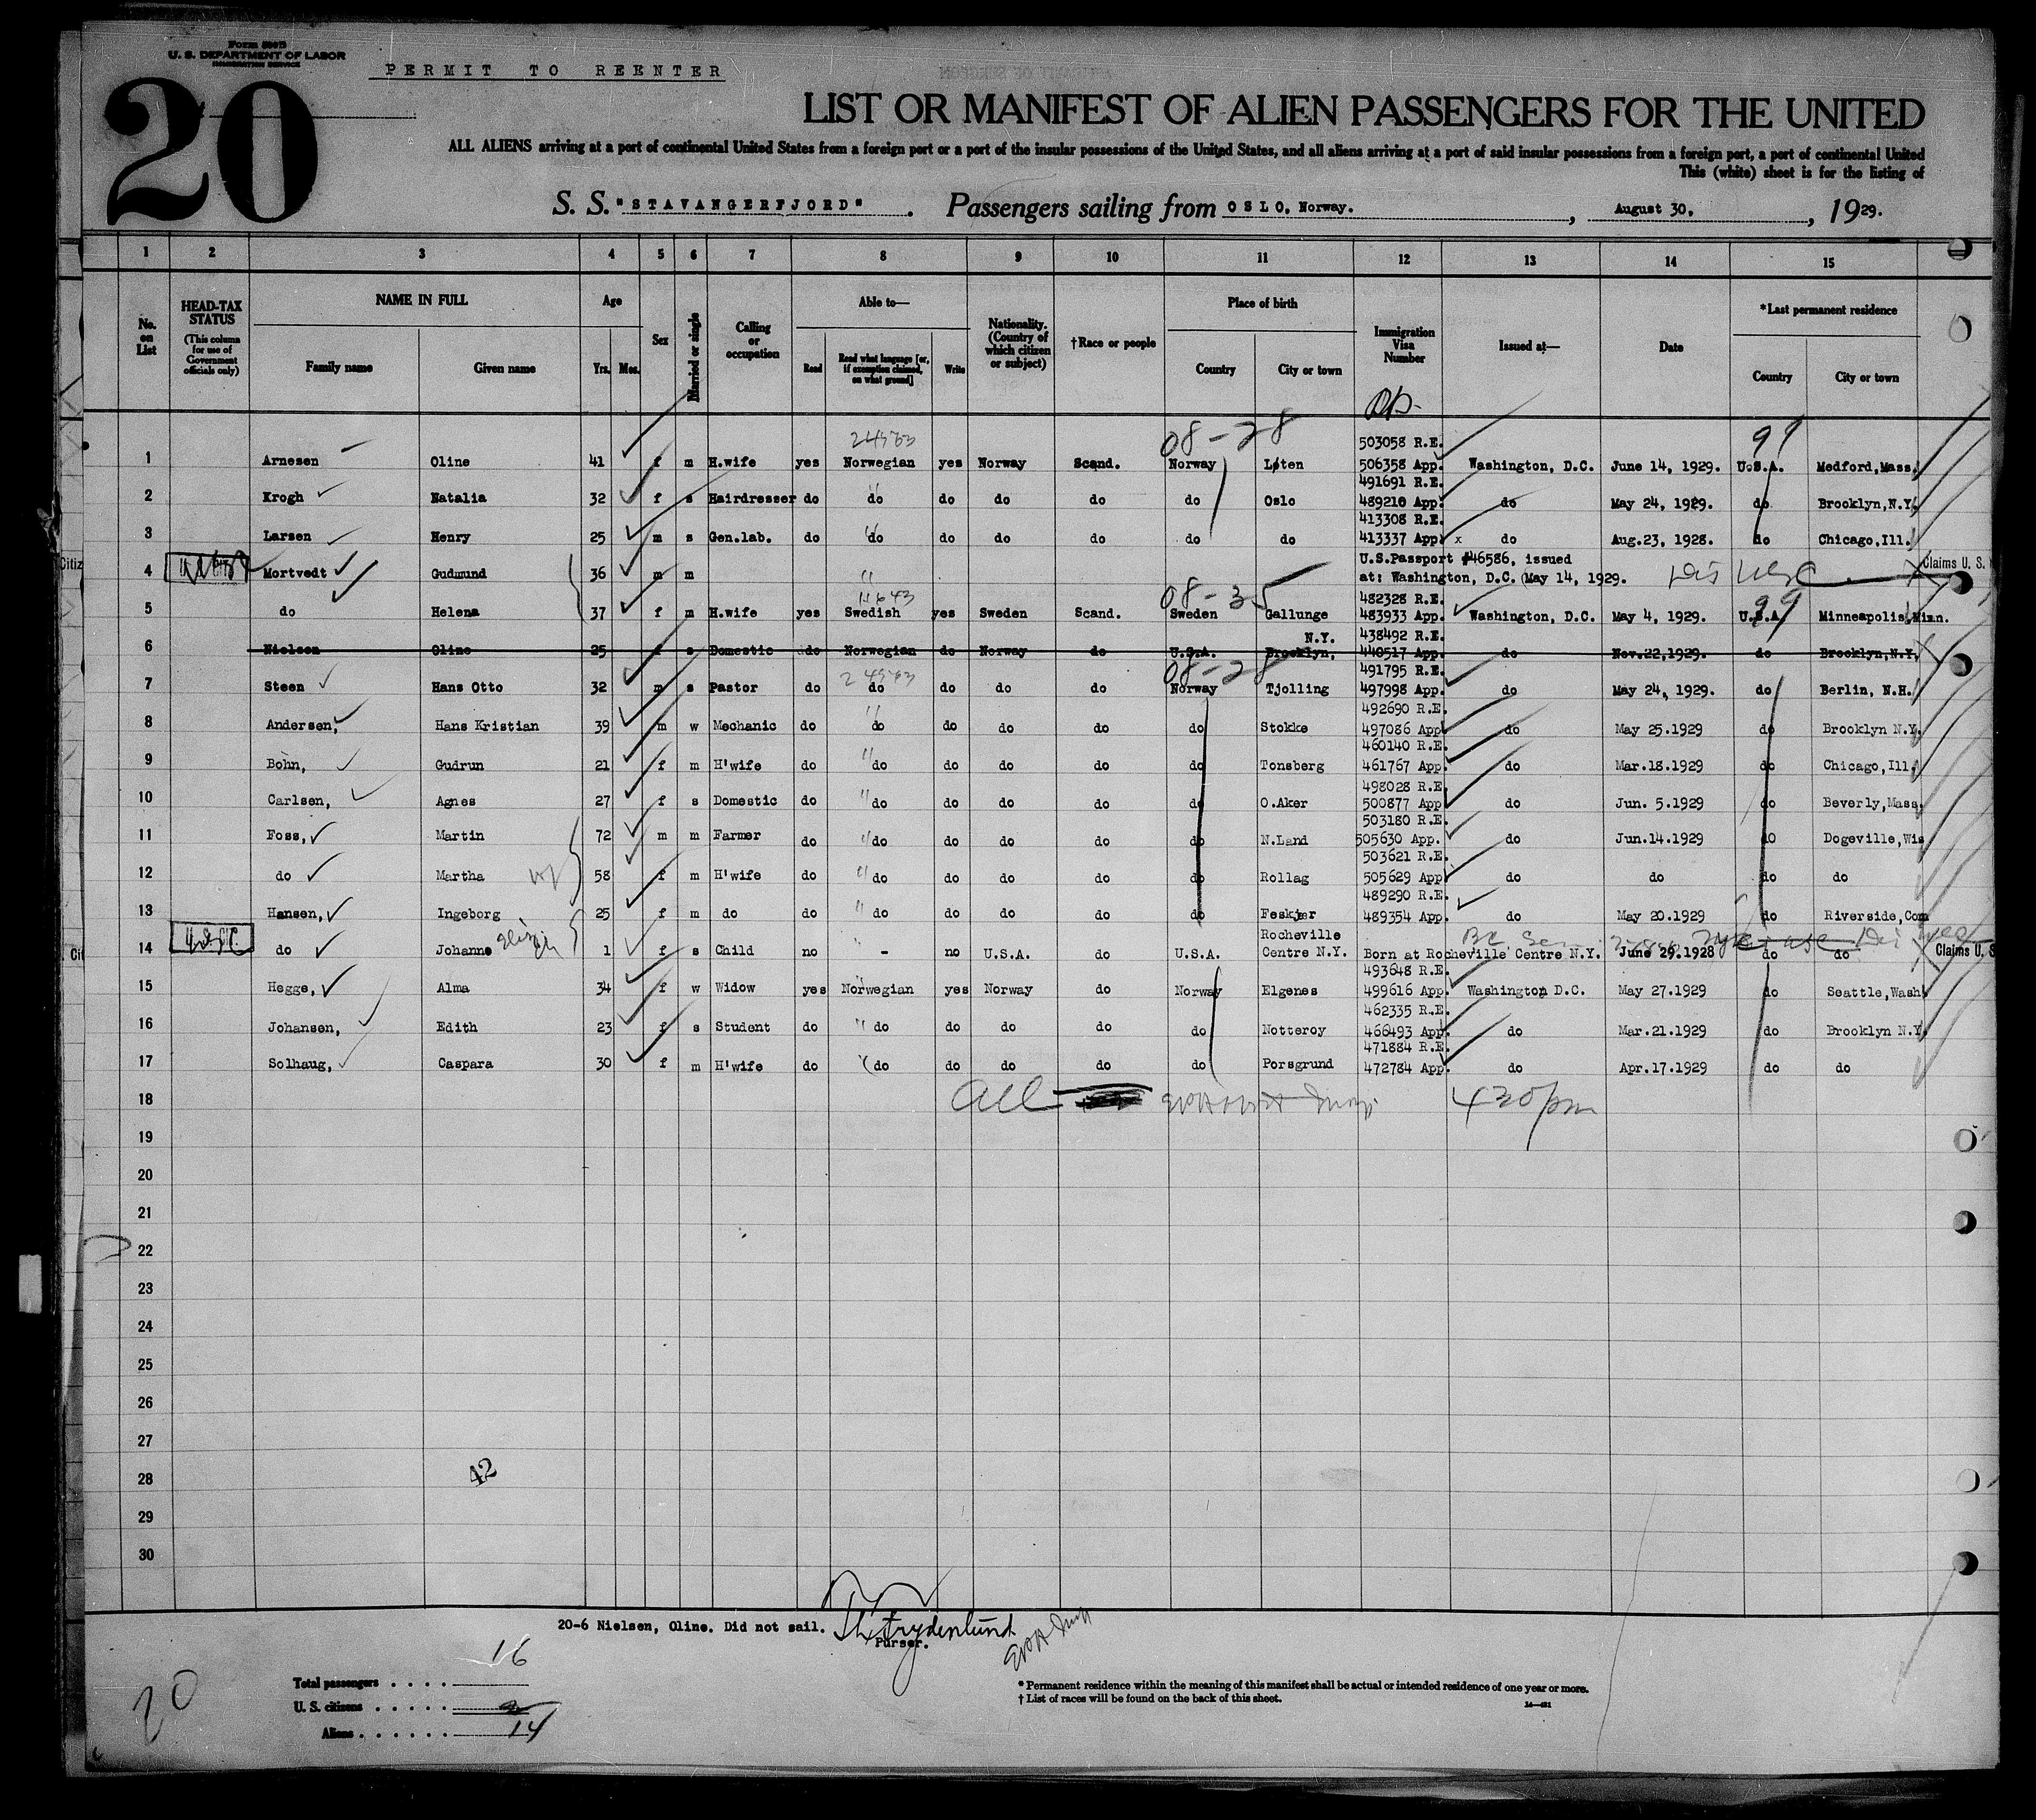 Form 500 B
U. S. DEPARTMENT OF LABOR
IMMIGRATION SERVICE
PERMIT TO REENTER
20
LIST OR MANIFEST OF ALIEN PASSENGERS FOR THE UNITED
ALL ALIENS arriving at a port of continental United States from a foreign port or a port of the insular possessions of the United States, and all aliens arriving at a port of said insular possessions from a foreign port, a port of continental United
This (white) sheet is for the listing of
S. S. "STAVANGERFJORD". Passengers sailing from OSLO, Norway. , August 30, , 1929.
1 2 3 4 5 6 7 8 9 10 11 12 13 14 15
No. on List
HEAD-TAX STATUS (This column for use of Government officials only)
NAME IN FULL Family name Given name
Age Yrs. Mos.
Sex
Married or single
Calling or occupation
Able to— Read Read what language [or, if exemption claimed, on what ground] Write
Nationality. (Country of which citizen or subject)
†Race or people
Place of birth Country City or town
Immigration Visa Number
Issued at—
Date
*Last permanent residence Country City or town
24563 08-28 99
503058 R.E.
1 Arnesen Oline 41 f m H.wife yes Norwegian yes Norway Scand. Norway Løten 506358 App. Washington, D.C. June 14, 1929. U.S.A. Medford,Mass.
491691 R.E.
2 Krogh Natalia 32 f s Hairdresser do do do do do do Oslo 489210 App. do May 24, 1929. do Brooklyn,N.Y.
413308 R.E.
3 Larsen Henry 25 m s Gen.lab. do do do do do do do 413337 App. x do Aug.23, 1928. do Chicago,Ill.
U.S.Passport #46586, issued
4 Mortvedt Gudmund 36 m m at: Washington, D.C. (May 14, 1929. Claims U. S.
08-35 99
482328 R.E.
5 do Helena 37 f m H.wife yes Swedish yes Sweden Scand. Sweden Gallunge 483933 App. Washington, D.C. May 4, 1929. U.S.A. Minneapolis,Minn.
N.Y. 438492 R.E.
6 Nielsen Oline 25 f s Domestic do Norwegian do Norway do U.S.A. Brooklyn, 440517 App. do Nov.22,1929. do Brooklyn,N.Y.
08-28 491795 R.E.
7 Steen Hans Otto 32 m s Pastor do do do do do Norway Tjolling 497998 App. do May 24, 1929. do Berlin, N.H.
492690 R.E.
8 Andersen, Hans Kristian 39 m w Mechanic do do do do do do Stokke 497086 App do May 25.1929 do Brooklyn N.Y.
460140 R.E.
9 Bohn, Gudrun 21 f m H'wife do do do do do do Tonsberg 461767 App. do Mar.18.1929 do Chicago,Ill.
498028 R.E.
10 Carlsen, Agnes 27 f s Domestic do do do do do do O.Aker 500877 App do Jun. 5.1929 do Beverly,Mass.
503180 R.E.
11 Foss, Martin 72 m m Farmer do do do do do do N.Land 505630 App. do Jun.14.1929 do Dogeville,Wis
503621 R.E.
12 do Martha 58 f m H'wife do do do do do do Rollag 505629 App do do do do
489290 R.E.
13 Hansen, Ingeborg 25 f m do do do do do do do Feskjær 489354 App. do May 20.1929 do Riverside,Con
Rocheville
14 do Johanne 1 f s Child no - no U.S.A. do U.S.A. Centre N.Y. Born at Rocheville Centre N.Y. June 29.1928 do do Claims U. S.
493648 R.E.
15 Hegge, Alma 34 f w Widow yes Norwegian yes Norway do Norway Elgenes 499616 App. Washington D.C. May 27.1929 do Seattle,Wash.
462335 R.E.
16 Johansen, Edith 23 f s Student do do do do do do Notteroy 466493 App. do Mar.21.1929 do Brooklyn N.Y.
471884 R.E.
17 Solhaug, Caspara 30 f m H'wife do do do do do do Porsgrund 472784 App. do Apr.17.1929 do do
18 all 430 pm
19
20
21
22
23
24
25
26
27
28 42
29
30
20-6 Nielsen, Oline. Did not sail. Th. Frydenlund
Purser.
Total passengers . . . . 16
U. S. citizens . . . . . 2
Aliens . . . . . . 14
20
* Permanent residence within the meaning of this manifest shall be actual or intended residence of one year or more.
† List of races will be found on the back of this sheet.